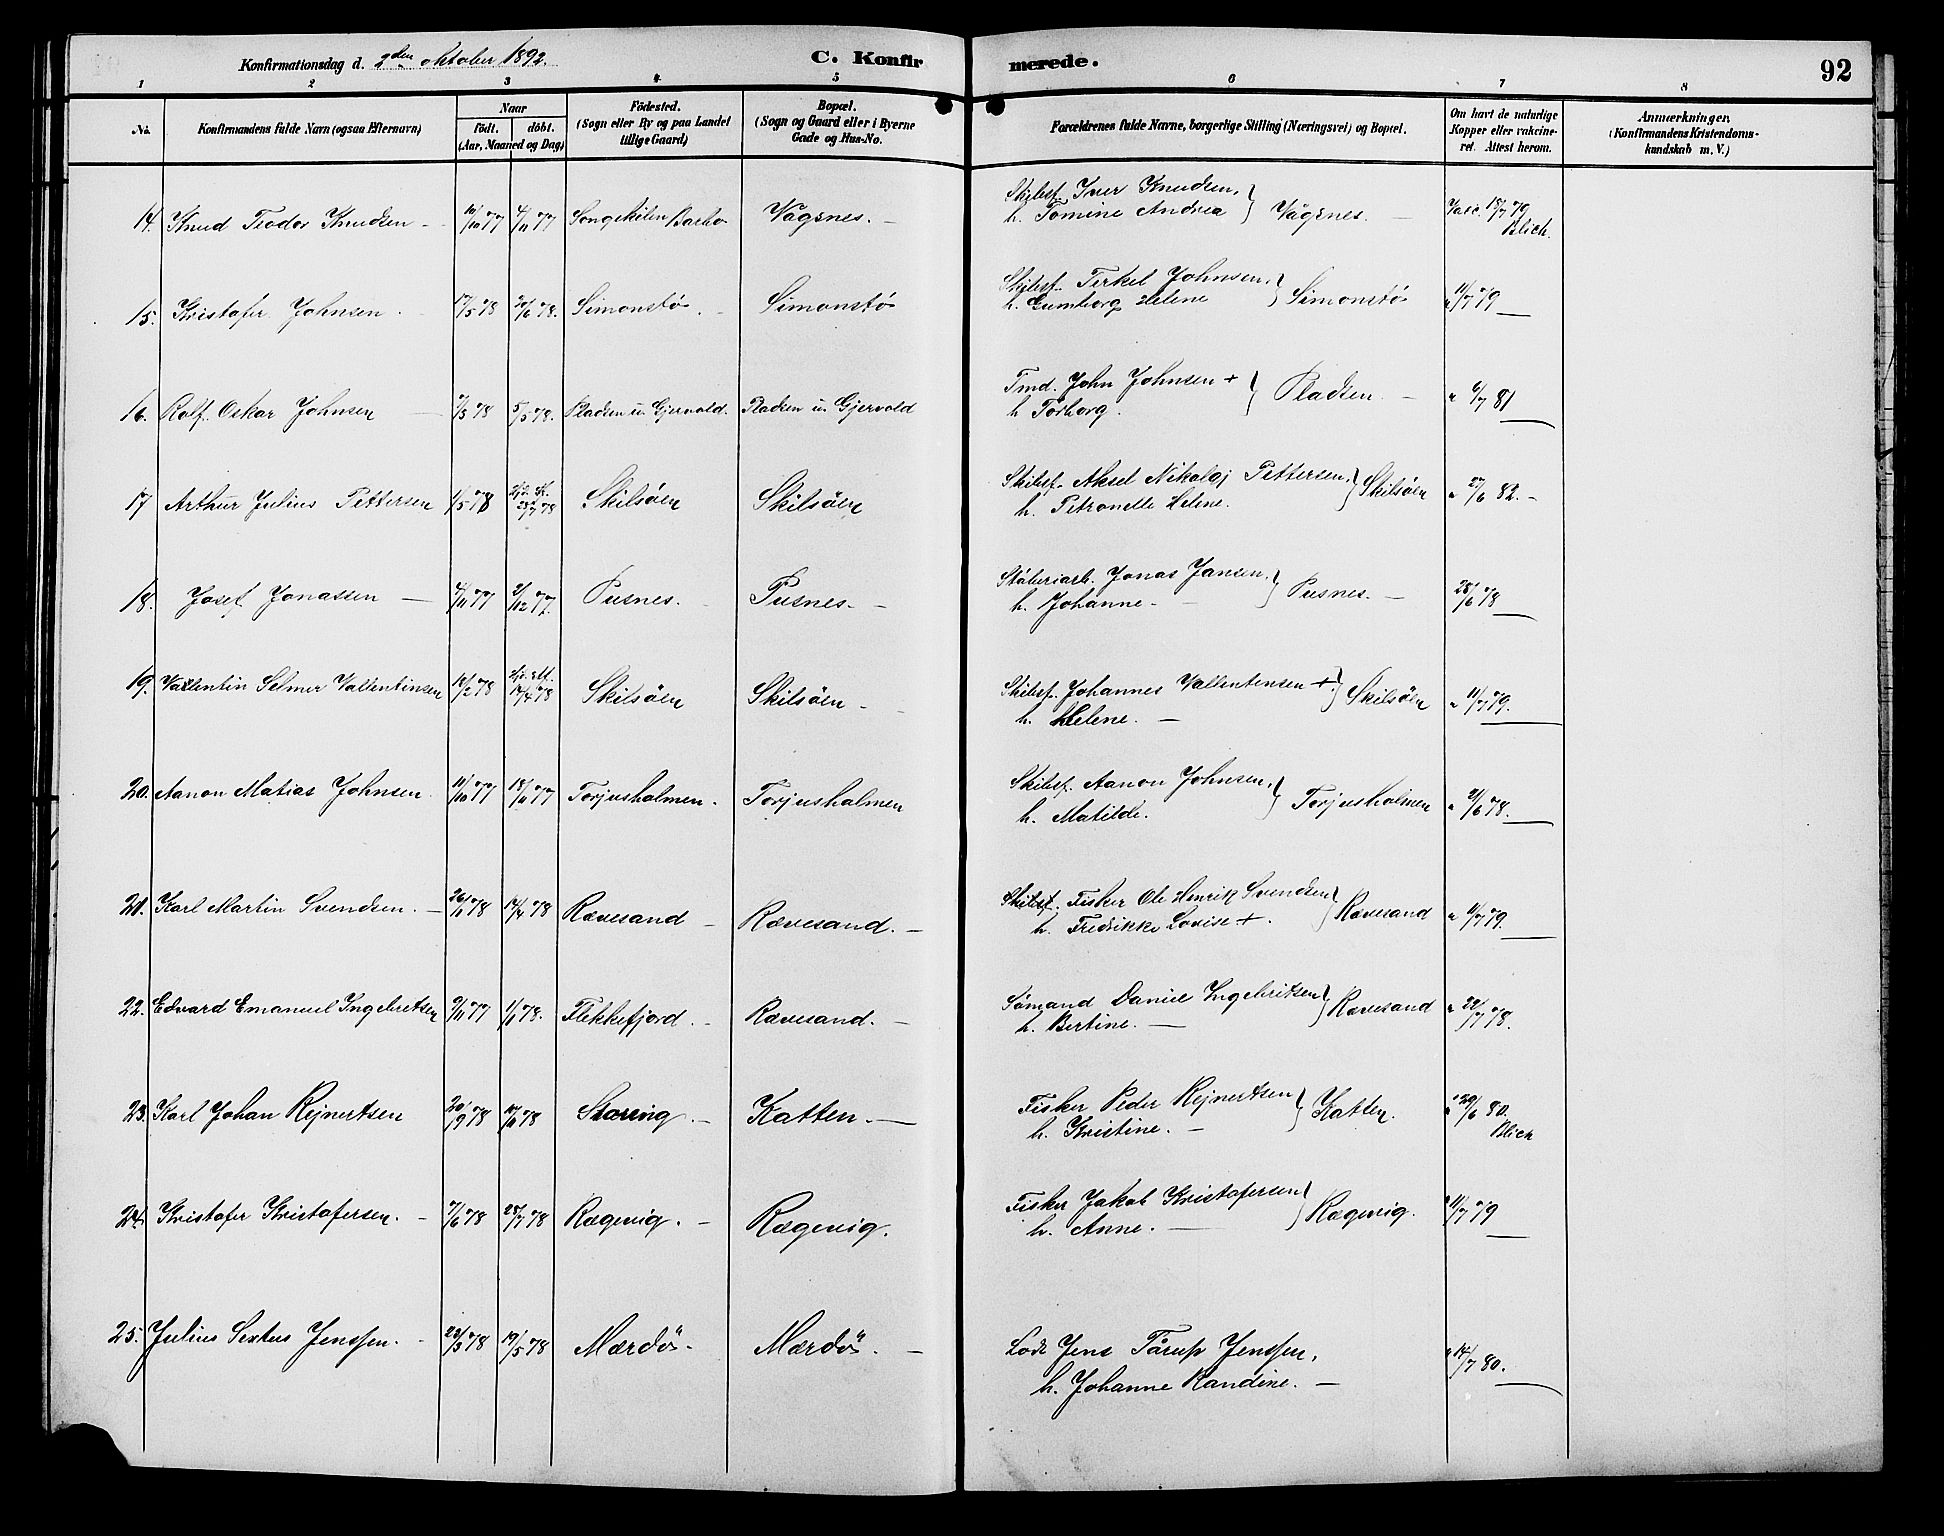 Konfirmationsdag d. 2den oktober 1892. C. Konfirmerede. 92
1 2 3 4 5 6 7 8
No. Konfirmandens fulde Navn (ogsaa Efternavn) Naar født. døbt. (Aar, Maaned og Dag) Födested. (Sogn eller By og paa Landet tillige Gaard) Bopæl. (Sogn og Gaard eller i Byerne Gade og Hus-No. Forældrenes fulde Navne, borgerlige Stilling (Næringsvei) og Bopæl. Om havt de naturlige Kopper eller vakcineret. Attest herom. Anmærkninger. (Konfirmandens Kristendomskundskab m. V.)
14. Knud Teodor Knudsen 10/10 77 4/11 77 Songekilen Barbo Vågsnes. Skibsf. Iver Knudsen, h. Tomine Andrea } Vågsnes. Vacc. 18/7 79 Blich.
15. Kristofer Johnsen 17/5 78 20/6 78. Simonstø. Simonstø Skibsf. Terkel Johnsen, h. Gumborg Helene } Simonstø " 11/7 79
16. Rolf Oskar Johnsen 7/3 78 5/5 78. Pladsen u. Gjervold. Pladsen u. Gjervold Tmd. John Johnsen + h. Torborg. } Pladsen. " 6/7 81
17 Arthur Julius Pettersen 1/5 78 28/7 78 Skilsøen Skilsøen Skibsf. Aksel Nikolaj Pettersen, h. Petronelle Helene. } Skilsøen " 27/6 82.
18. Josef Jonassen 4/11 77 2/12 77. Pusnes. Pusnes. Støberiarb. Jonas Jansen, h. Johanne. } Pusnes. 28/6 78
19. Vallentin Selmer Vallentinsen 18/2 78 14/4 78 Skilsøen Skilsøen Skibsf. Johannes Vallentensen +. h. Helene. } Skilsøen " 11/7 79.
20. Aanon Matias Johnsen 11/10 77 18/11 77 Torjusholmen. Torjusholmen Skibsf. Aanon Johnsen, h. Matilde. } Torjusholmen " 21/6 78.
21. Karl Martin Svendsen. 26/1 78 14/4 78 Rævesand Rævesand. Fisker Ole Henrik Svendsen h. Fredrikke Lovise +. } Rævesand " 11/7 79.
22. Edvard Emanuel Ingebretsen 9/11 77 1/1 78. Flekkefjord. Rævesand. Sømand Daniel Ingebritsen h. Bertine. } Rævesand " 22/7 78.
23. Karl Johan Rejnertsen 20/9 78 17/11 78 Staring Katten. Fisker Peder Rejnertsen h. Kristine. } Katten. " 29/6 80. Blich
24. Kristofer Kristofersen. 7/6 78 28/7 78 Rægevig. Rægevig. Fisker Jakob Kristofersen h. Anne. } Rægevig. " 11/7 79
25. Julius Sextus Jenssen. 23/3 78 19/5 78 Mærdø. Mærdø. Lods Jens Tårup Jenssen, h. Johanne Randine. " 14/7 80.